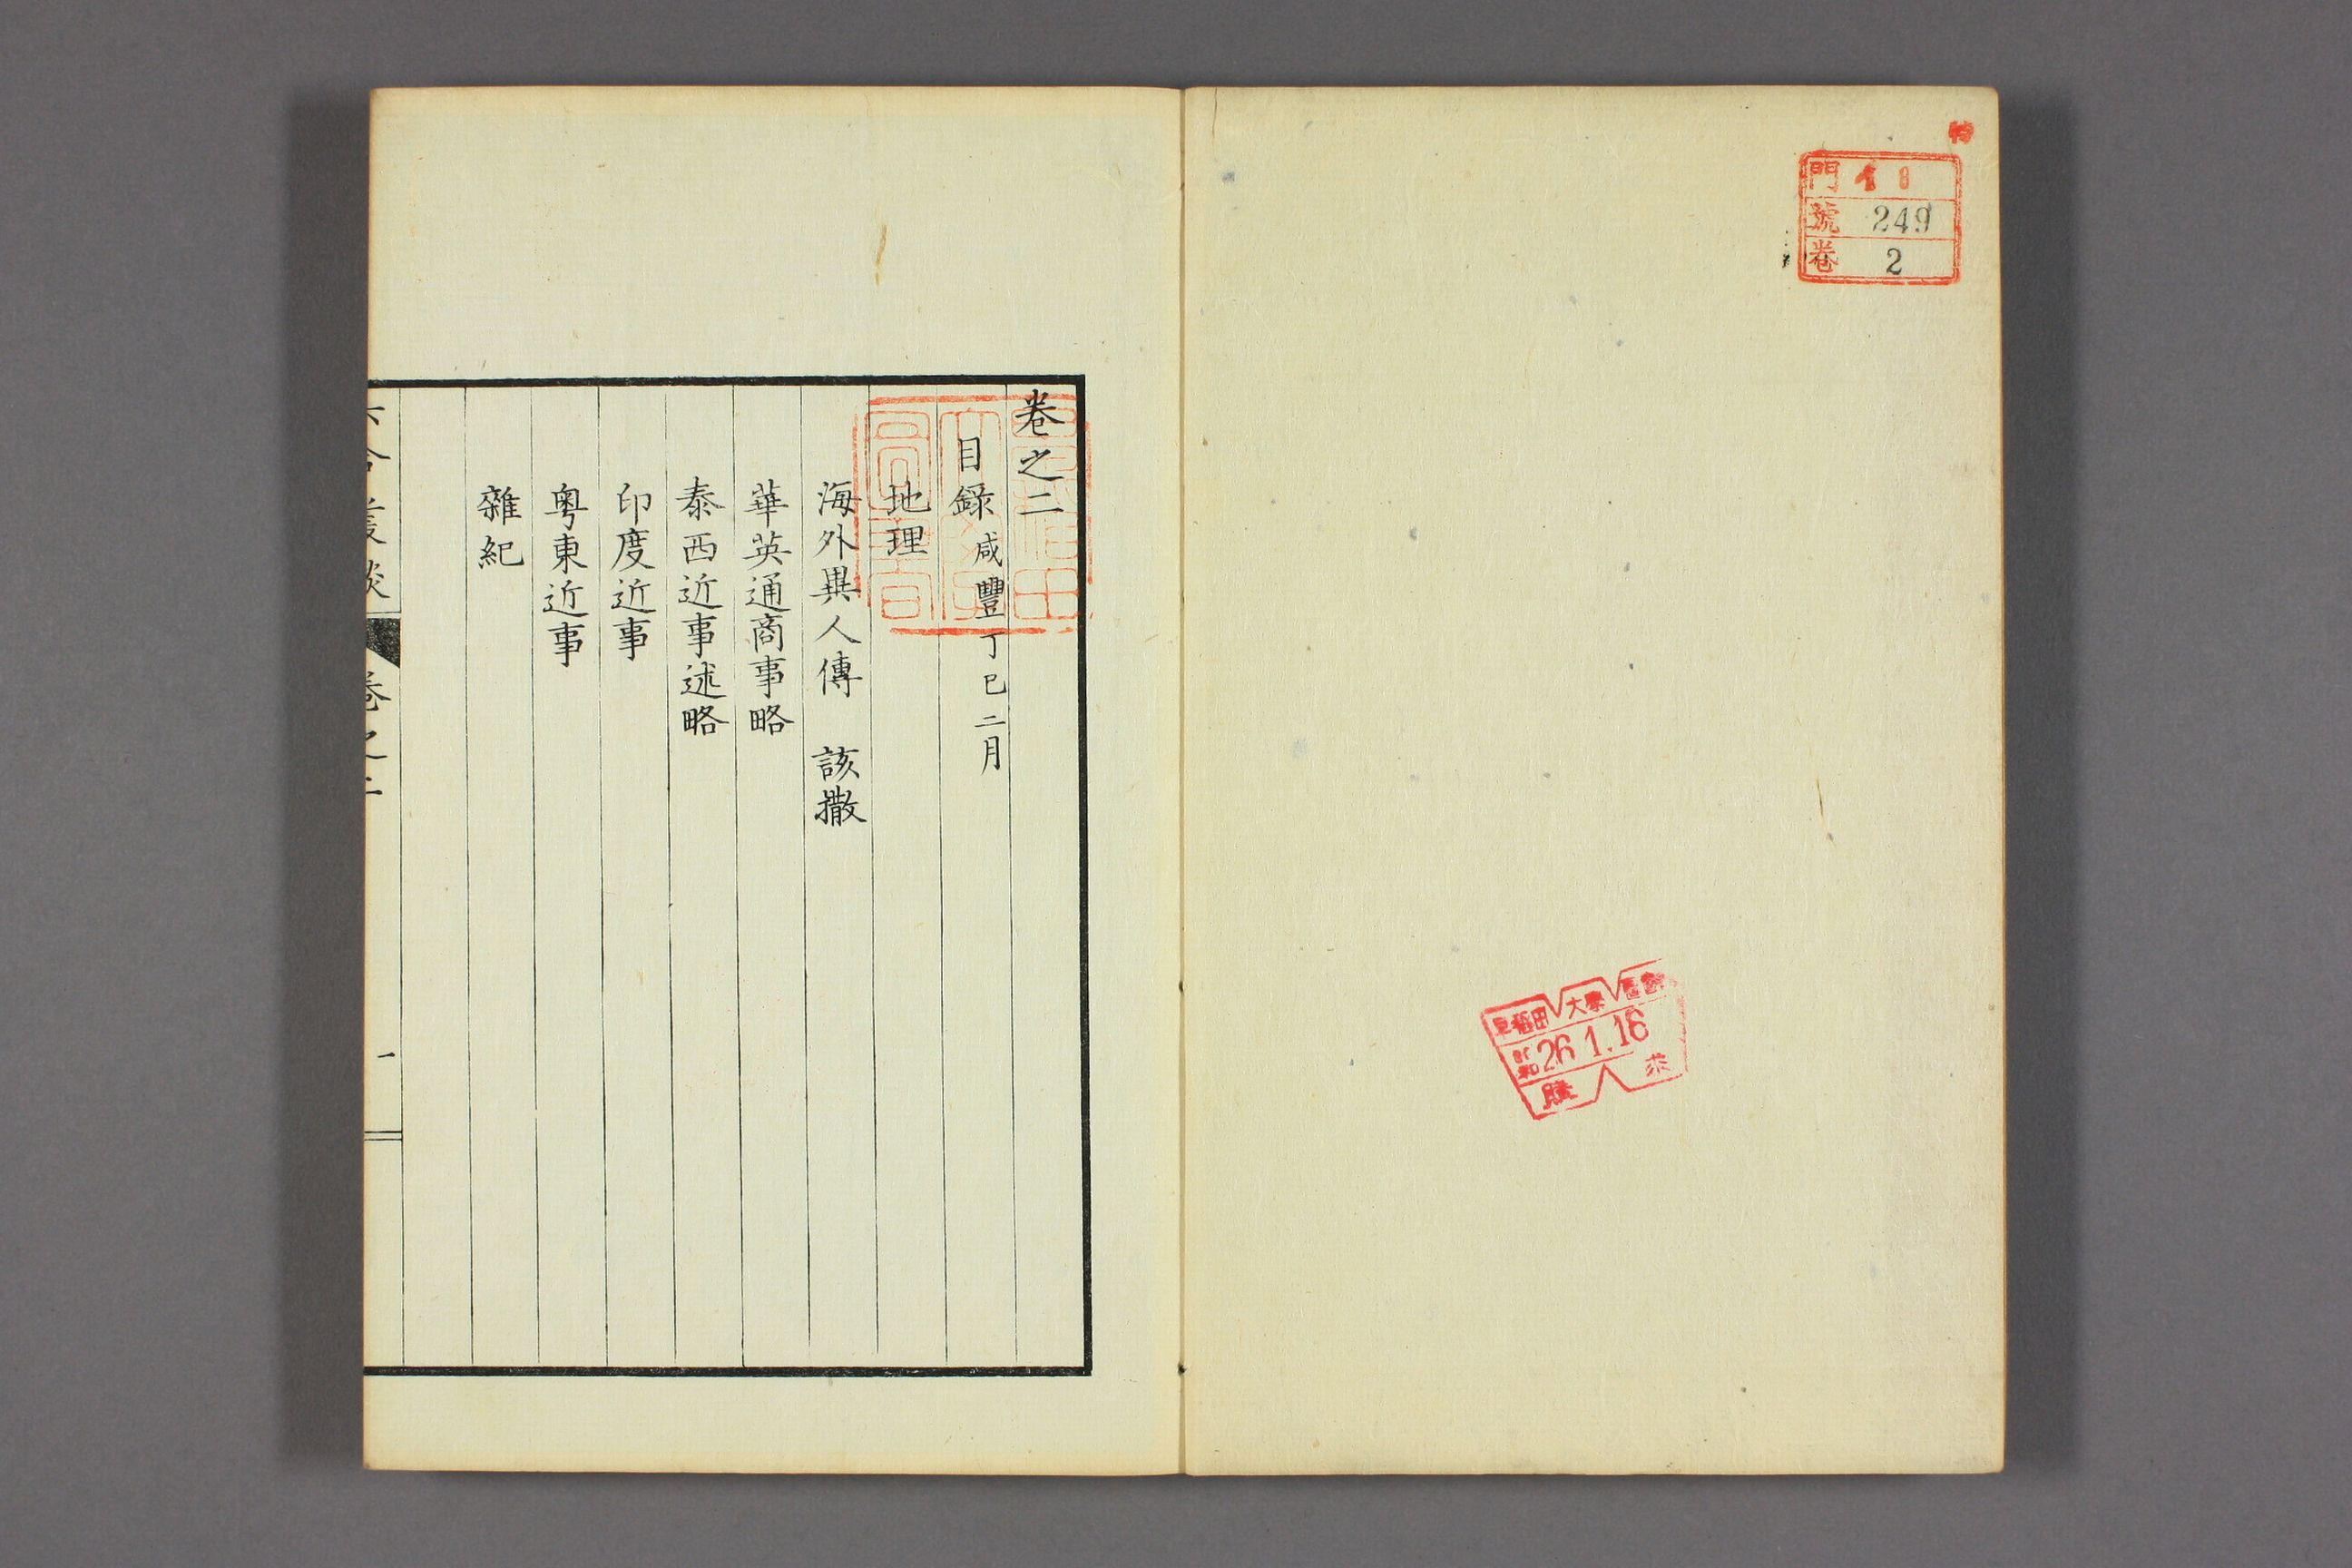 門 8
號 249
卷 2
早稻田大學圖書
昭和 26.1.16
購 求
卷之二
目錄 咸豐丁巳二月
地理
海外異人傳 該撒
華英通商事略
泰西近事述略
印度近事
粵東近事
雜紀
合叢談 卷之二
一